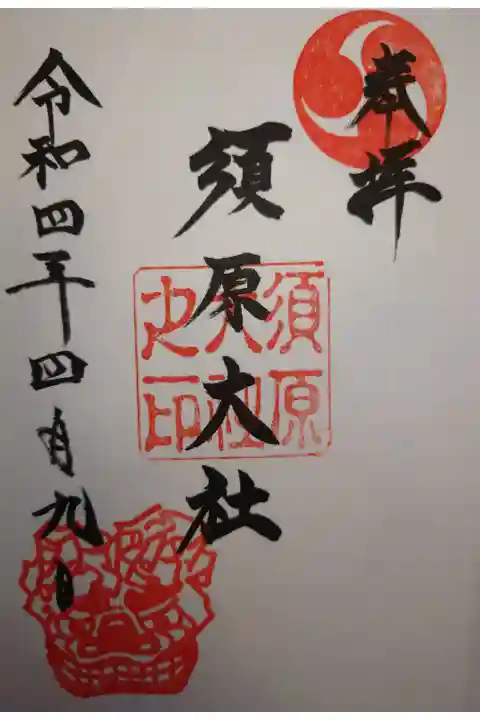 奉拝
須原大社
須原
大社
之印
令和四年四月九日